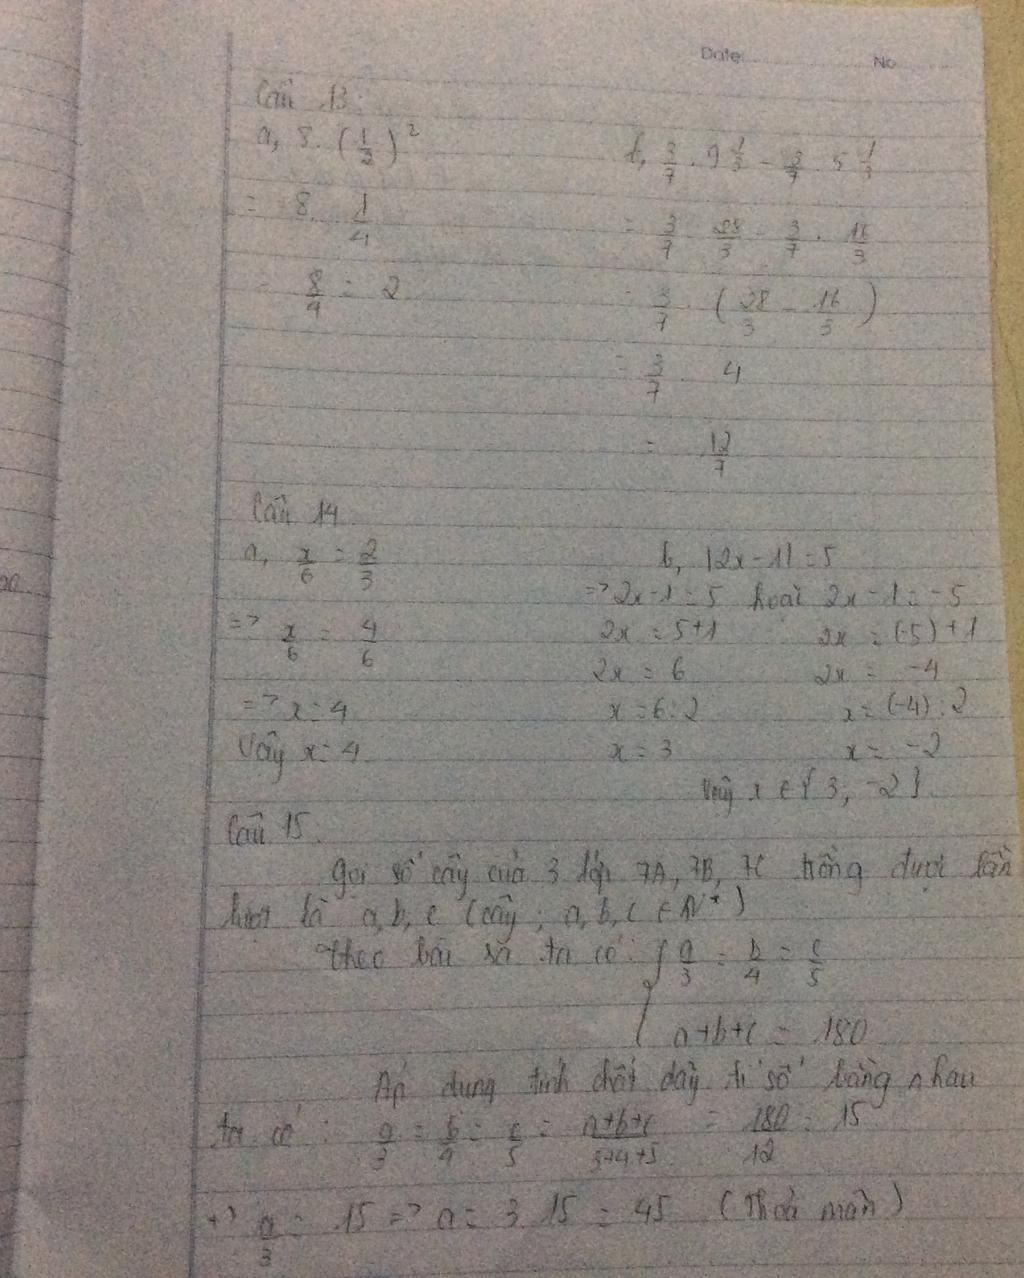 Date No
Câu 13:
a, 8. (1/2)² b, 3/7 . 9 1/3 - 3/7 . 5 1/3
= 8. 1/4 = 3/7 . 28/3 - 3/7 . 16/3
= 8/4 = 2 = 3/7 . (28/3 - 16/3)
= 3/7 . 4
= 12/7
Câu 14
a, x/6 = 2/3 b, |2x-1| = 5
=> x/6 = 4/6 => 2x-1 = 5 hoặc 2x-1 = -5
2x = 5+1 2x = (-5)+1
2x = 6 2x = -4
=> x = 4 x = 6:2 x = (-4):2
Vậy x = 4 x = 3 x = -2
Vậy x ∈ { 3; -2 }
Câu 15.
Gọi số cây của 3 lớp 7A, 7B, 7C trồng được lần
lượt là a, b, c (cây; a, b, c ∈ N*)
Theo bài ra ta có: { a/3 = b/4 = c/5
a+b+c = 180
Áp dụng tính chất dãy tỉ số bằng nhau
ta có: a/3 = b/4 = c/5 = a+b+c/3+4+5 = 180/12 = 15
+) a/3 = 15 => a = 3 15 = 45 (Thoả mãn)